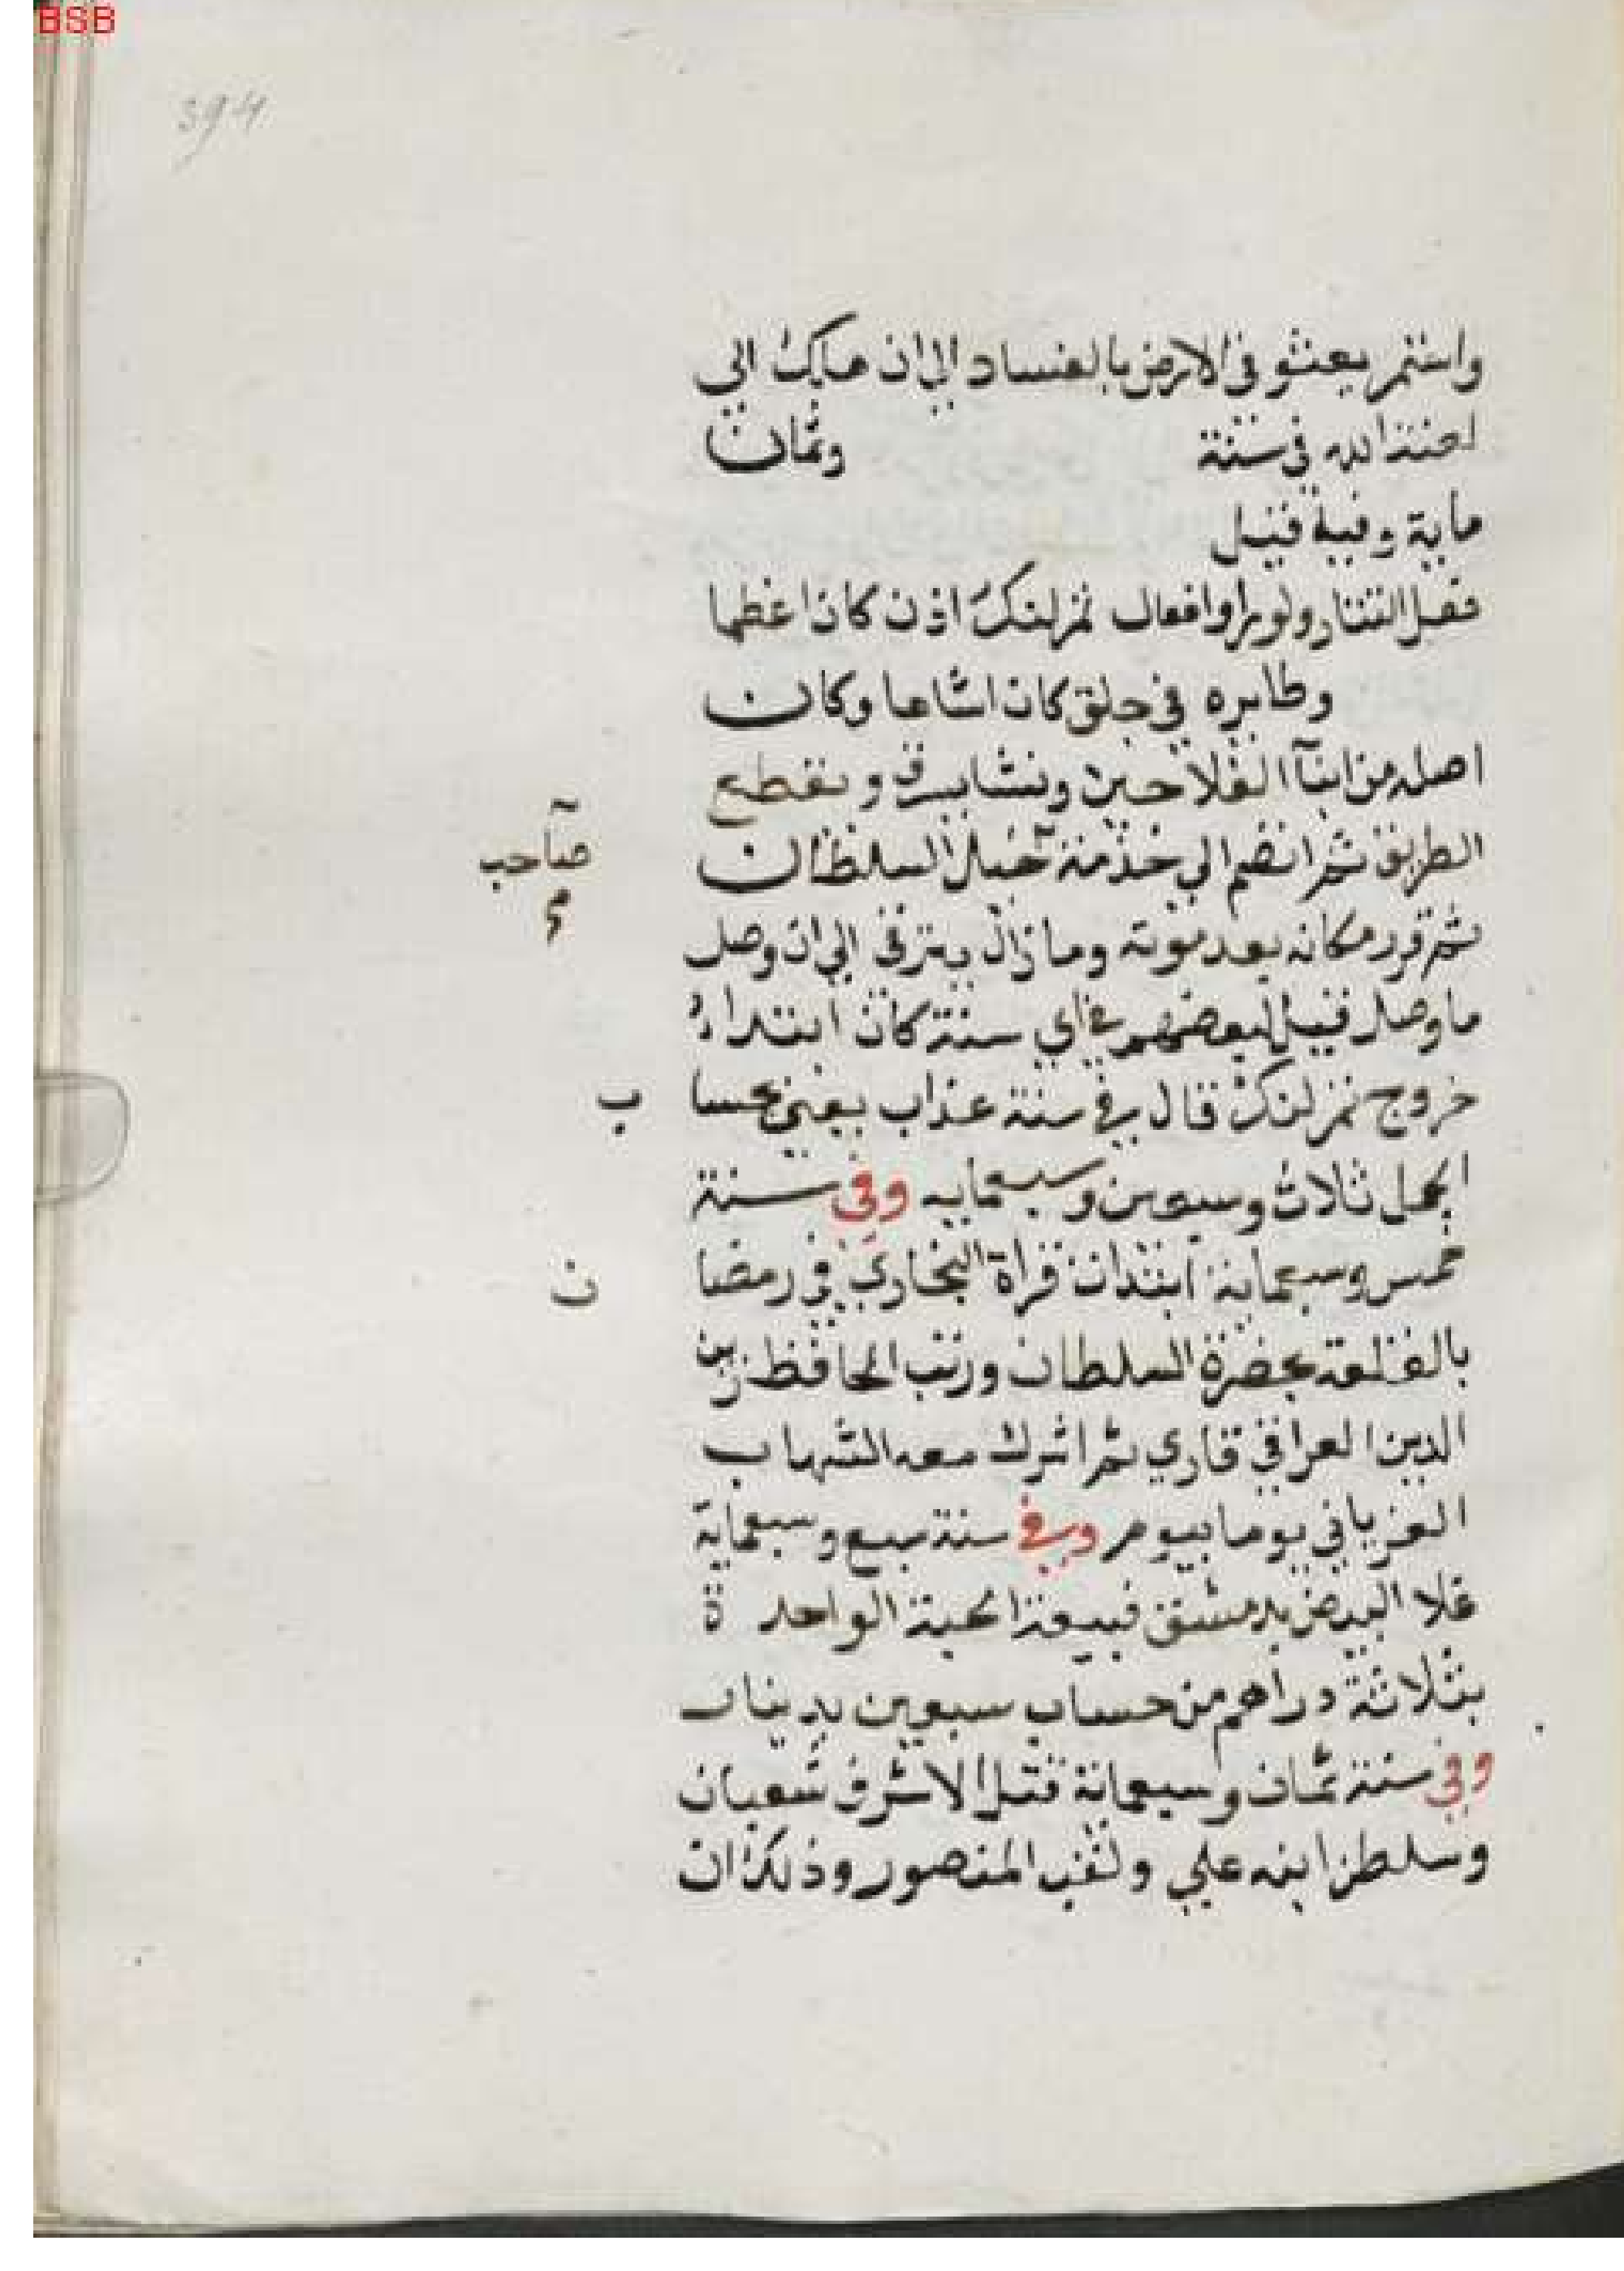 BSB
394
واستمر يعثو في الارض بالفساد الي ان هلك الي
لعنت الله في سنة وثمان
ماية وفيه قيل
فعل التتار ولو برا وافعال تمرلنك اذن كان اعظما
وطايره في جلق كان اشاما وكان
اصله من ابنآ الفلاحين ونشا يسرق ويقطع
الطريق ثم انضم الي خدمة خيل السلطان
صاحب
ثم قرر مكانه بعد موته وما زال يترقي الي ان وصل
ما وصل قيل لبعضهم في اي سنة كان ابتداء
خروج تمرلنك قال في سنة عذاب يعني بحسا ب
الجمل ثلاث وسبعين وسبعمايه وفي سنة
خمس وسبعماية ابتدات قراة البخاري في رمضا ن
بالقلعة بحضرة السلطان ورتب الحافظ زين
الدين العراقي قاري ثم اشرك معه الشهاب
العرياني يوما بيوم وفي سنة سبع وسبعماية
غلا البيض بدمشق فبيعة الحبة الواحد ة
بثلاثة دراهم من حساب سبعين بدينار
وفي سنة ثمان وسبعماية قتل الاشرف شعبان
وسلطن ابنه علي ولقب المنصور وذلك ان